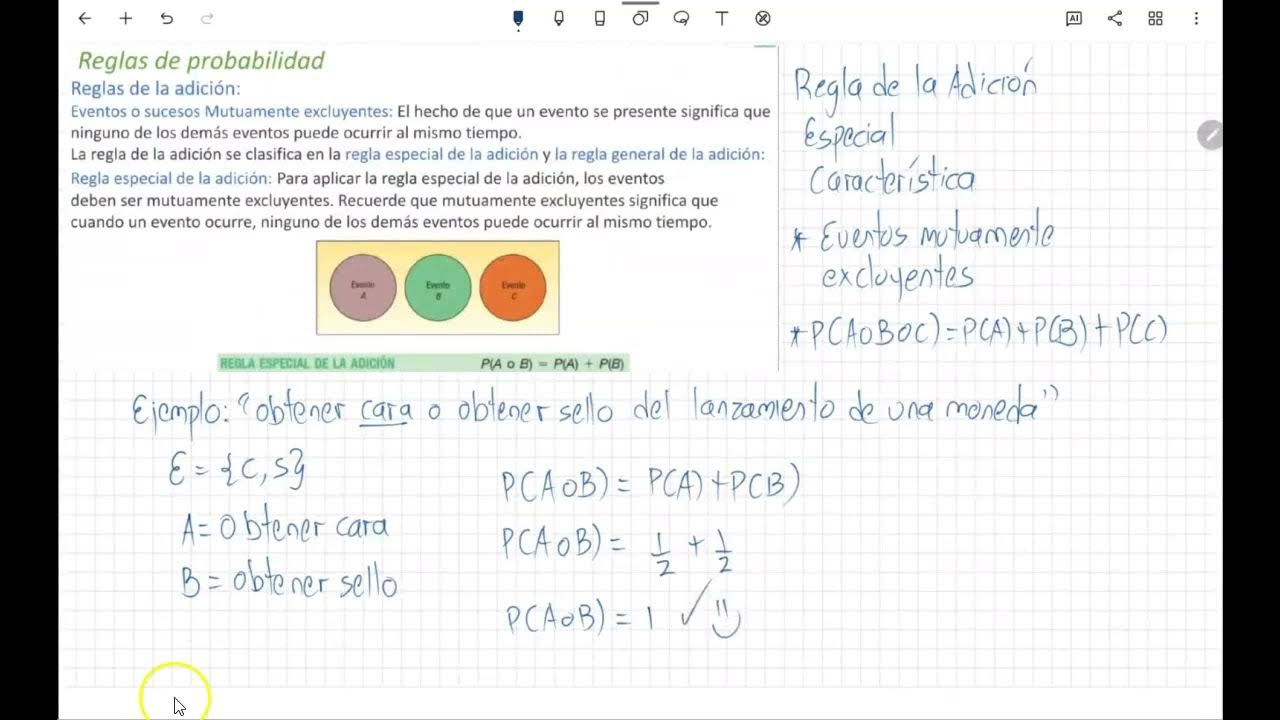 Reglas de probabilidad
Reglas de la adición:
Eventos o sucesos Mutuamente excluyentes: El hecho de que un evento se presente significa que
ninguno de los demás eventos puede ocurrir al mismo tiempo.
La regla de la adición se clasifica en la regla especial de la adición y la regla general de la adición:
Regla especial de la adición: Para aplicar la regla especial de la adición, los eventos
deben ser mutuamente excluyentes. Recuerde que mutuamente excluyentes significa que
cuando un evento ocurre, ninguno de los demás eventos puede ocurrir al mismo tiempo.
Evento
A
Evento
B
Evento
C
REGLA ESPECIAL DE LA ADICIÓN P(A o B) = P(A) + P(B)
Regla de la Adición
Especial
Característica
* Eventos mutuamente
excluyentes
* P(A o B o C) = P(A) + P(B) + P(C)
Ejemplo: "obtener cara o obtener sello del lanzamiento de una moneda"
E = {C, S}
A = Obtener cara
B = obtener sello
P(A o B) = P(A) + P(B)
P(A o B) = 1/2 + 1/2
P(A o B) = 1 ✓
T
AI